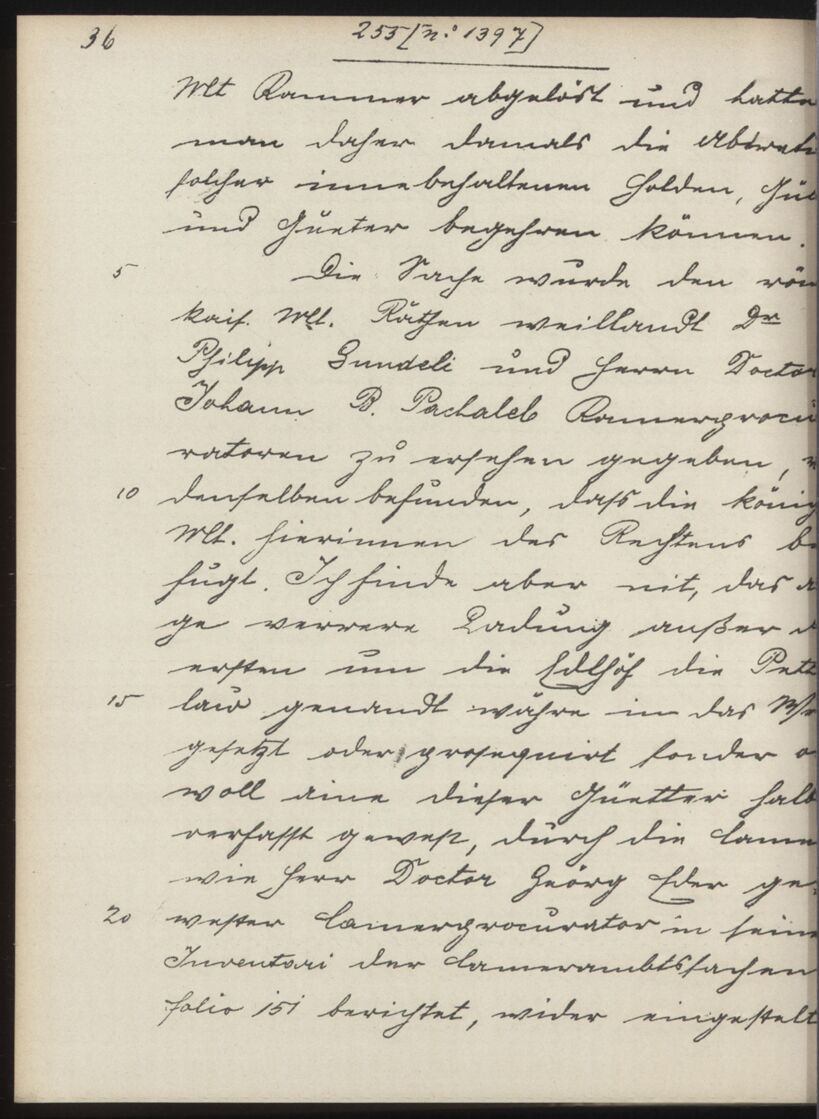 36
255 [n: 1397]
Mlt Kammer abgelöst und hatte
man daher damals die Abtret
solcher innebehaltenen Holden, Gül
und Güeter begehren können.
5 Die Sache wurde den röm
kais. Mt. Räthen weillandt Dr
Philipp Gundeli und Herrn Doctor
Johann B. Pachaleb Kamerprocu
ratoren zu ersehen gegeben,
10 denselben befunden, dass die könig
Mt. hierinnen des Rechtens be
fugt. Ich finde aber nit, das a
ge verrere Ladung außer d
ersten um die Edlhöf die Pett
15 lau genandt währe in das
gesetzt oder prosequirt sonder o
woll aine dieser Güetter halb
verfasst gewest, durch die Came
wie Herr Doctor Geörg Eder ge-
20 wester Camerprocurator in seine
Inventari der Camerambtssachen
folio 151 berichtet, wider eingestelt